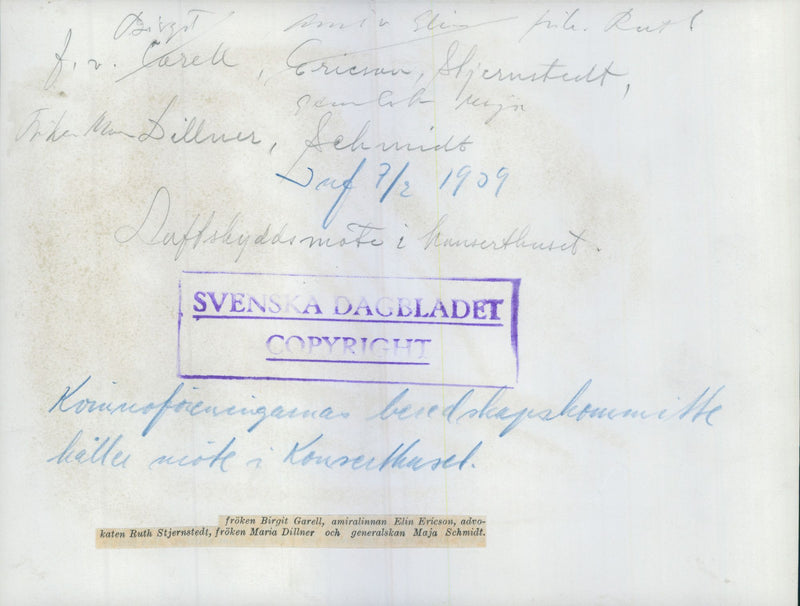 Birgit Elin frk. Ruth
f. v. Garell, Ericson, Stjernstedt,
Maja
Fröken Dillner, Schmidt
7/2 1939
Luftskyddsmöte i Konserthuset.
SVENSKA DAGBLADET
COPYRIGHT
Kvinnoföreningarnas beredskapskommitté
håller möte i Konserthuset.
fröken Birgit Garell, amiralinnan Elin Ericson, advo-
katen Ruth Stjernstedt, fröken Maria Dillner och generalskan Maja Schmidt.